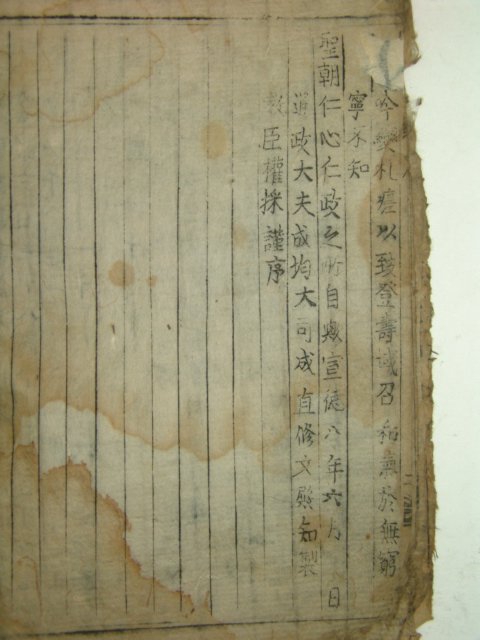 吟變札瘥以致登壽域召和氣於無窮
寧不知
聖朝仁心仁政之所自歟宣德八年六月 日
通政大夫成均大司成直修文殿知製
敎臣權採謹序